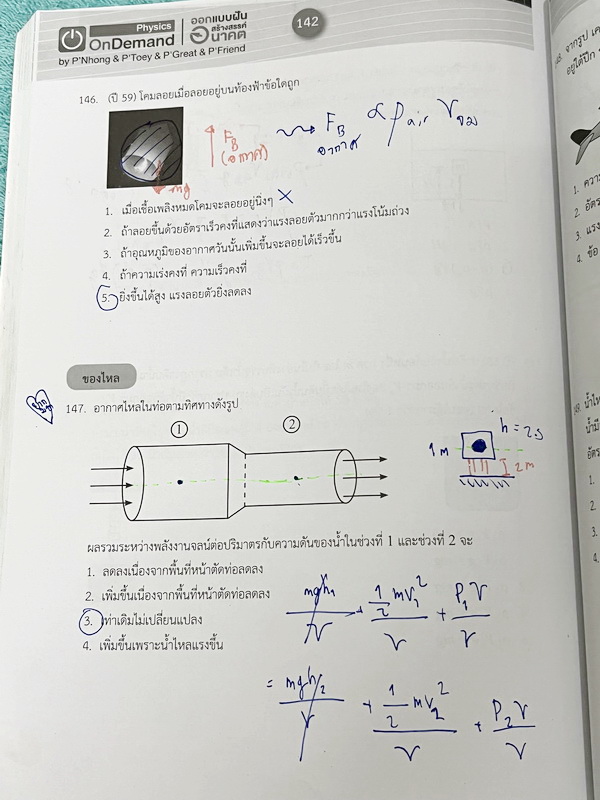 Physics
OnDemand
ออกแบบฝัน
สร้างสรรค์
อนาคต
142
by P'Nhong & P'Toey & P'Great & P'Friend
146. (ปี 59) โคมลอยเมื่อลอยอยู่บนท้องฟ้าข้อใดถูก
F_B
(อากาศ)
mg
F_B ∝ ρ_air V_จม
อากาศ
1. เมื่อเชื้อเพลิงหมดโคมจะลอยอยู่นิ่งๆ X
2. ถ้าลอยขึ้นด้วยอัตราเร็วคงที่แสดงว่าแรงลอยตัวมากกว่าแรงโน้มถ่วง
3. ถ้าอุณหภูมิของอากาศวันนั้นเพิ่มขึ้นจะลอยได้เร็วขึ้น
4. ถ้าความเร่งคงที่ ความเร็วคงที่
5. ยิ่งขึ้นได้สูง แรงลอยตัวยิ่งลดลง
ของไหล
147. อากาศไหลในท่อตามทิศทางดังรูป
1
2
h = 2.5
1 m
2 m
ผลรวมระหว่างพลังงานจลน์ต่อปริมาตรกับความดันของน้ำในช่วงที่ 1 และช่วงที่ 2 จะ
1. ลดลงเนื่องจากพื้นที่หน้าตัดท่อลดลง
2. เพิ่มขึ้นเนื่องจากพื้นที่หน้าตัดท่อลดลง
3. เท่าเดิมไม่เปลี่ยนแปลง
4. เพิ่มขึ้นเพราะน้ำไหลแรงขึ้น
mgh₁/V + ½mv₁²/V + P₁V/V
= mgh₂/V + ½mv₂²/V + P₂V/V